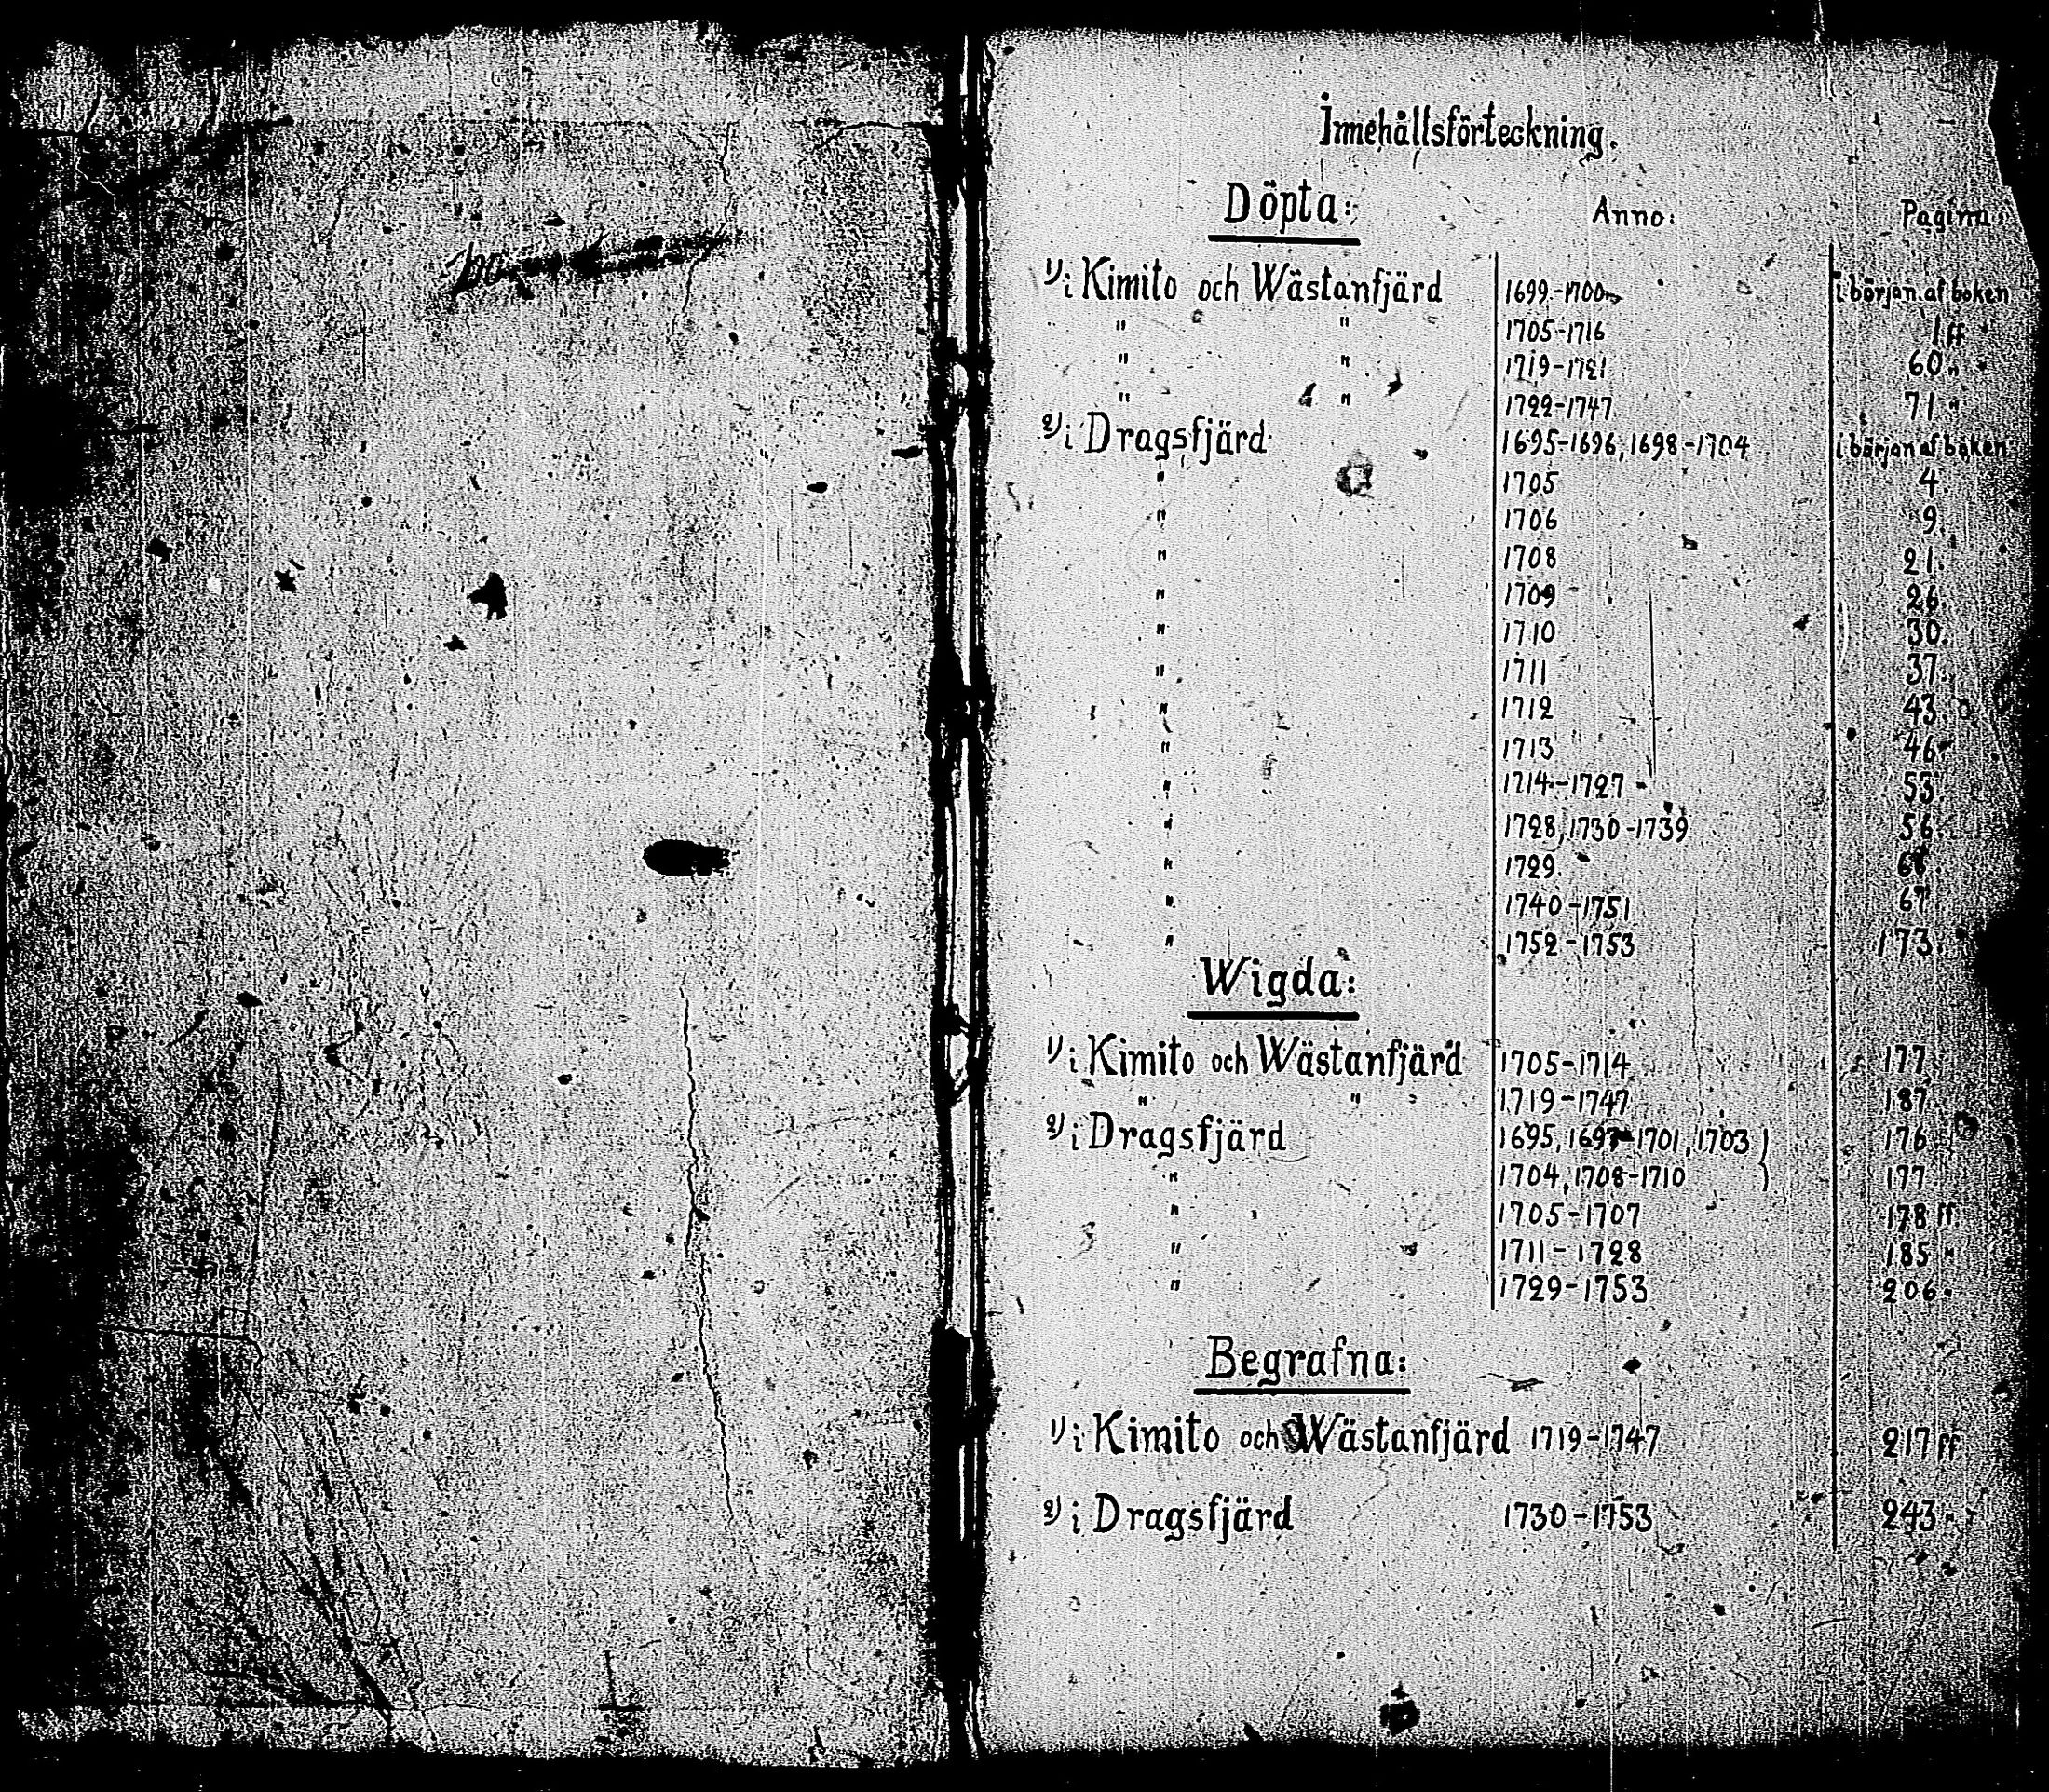 Innehållsförteckning.
Döpta: Anno: Pagina:
1) i Kimito och Wästanfjärd 1699-1700 i början af boken
" " 1705-1716 1 ff
" " 1719-1721 60 "
" " 1722-1747 71 "
2) i Dragsfjärd 1695-1696, 1698-1704 i början af boken
" 1705 4.
" 1706 9.
" 1708 21.
" 1709 26.
" 1710 30.
" 1711 37.
" 1712 43.
" 1713 46
" 1714-1727 53.
" 1728, 1730-1739 56.
" 1729.
" 1740-1751 67
" 1752-1753 173.
Wigda:
1) i Kimito och Wästanfjärd 1705-1714 177
" " 1719-1747 187
2) i Dragsfjärd 1695, 1697-1701, 1703 } 176
" 1704, 1708-1710 177
" 1705-1707 178 ff.
" 1711-1728 185 "
" 1729-1753 206 "
Begrafna:
1) i Kimito och Wästanfjärd 1719-1747 217 ff
2) i Dragsfjärd 1730-1753 243 "